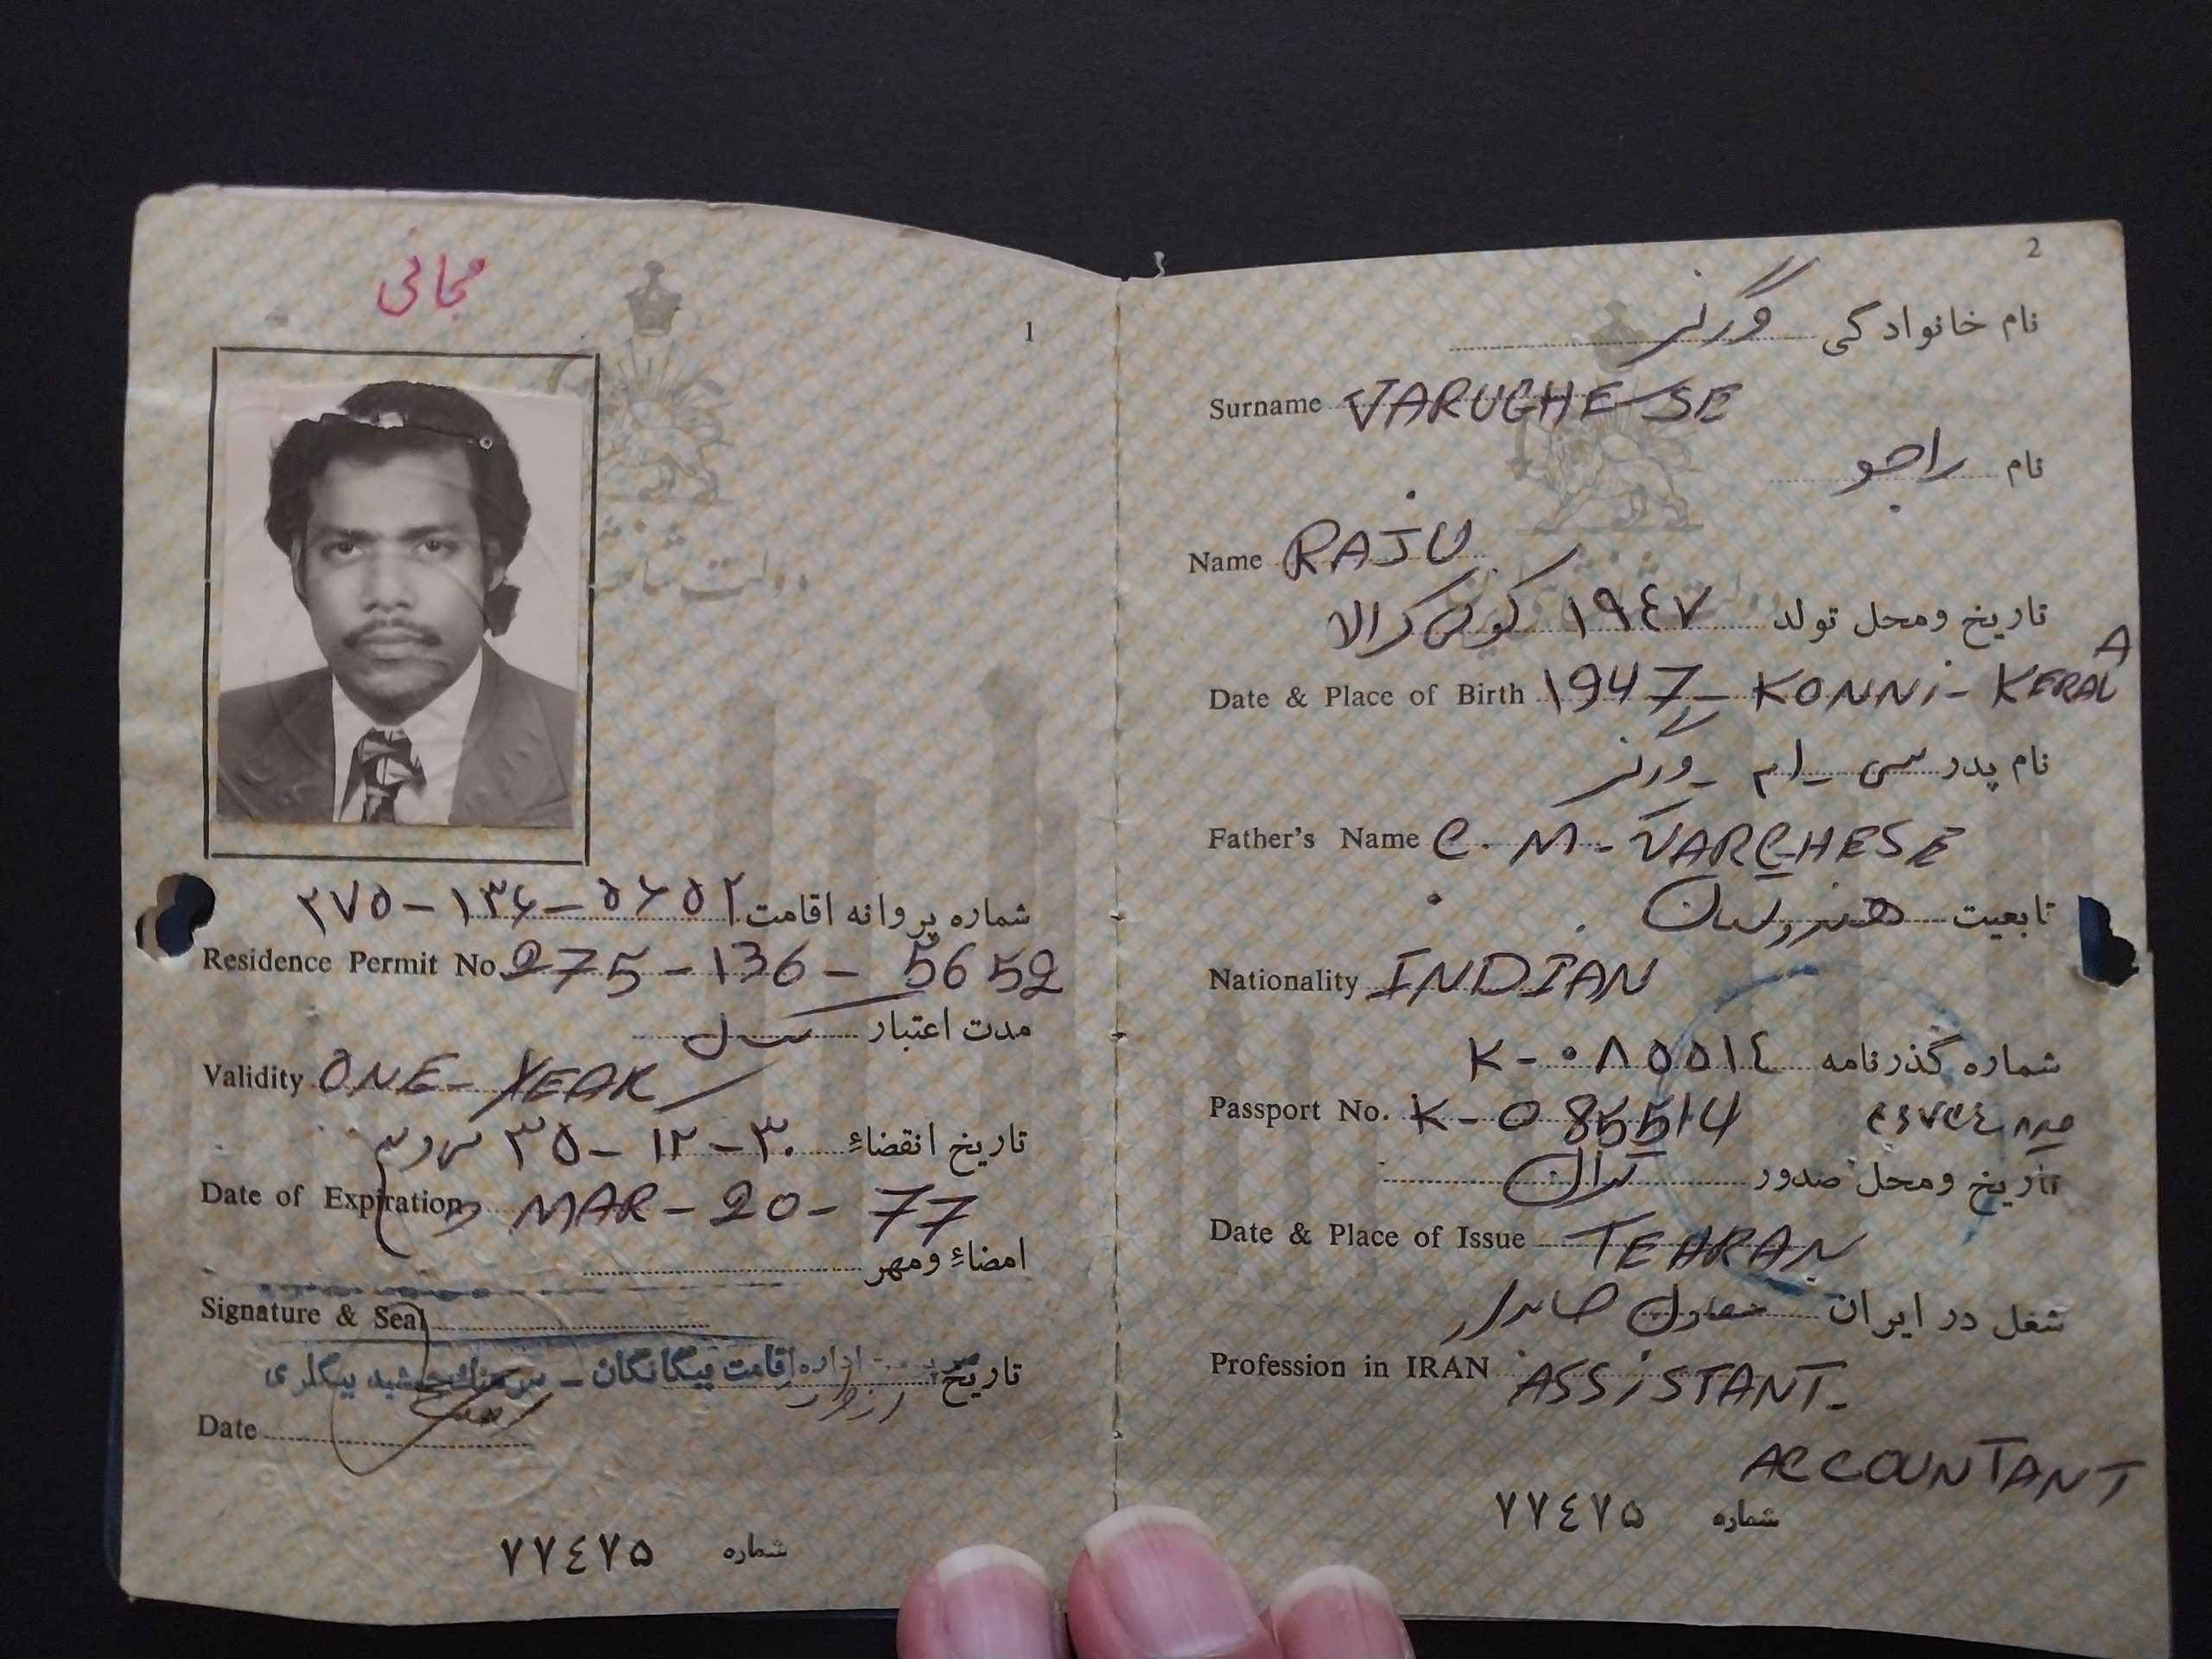 مجانی
1
شماره پروانه اقامت ۲۷۵-۱۳۶-۵۶۵۲
Residence Permit No. 275-136-5652
مدت اعتبار
Validity ONE-YEAR
تاریخ انقضاء ۳۰-۱۲-۳۵
Date of Expiration MAR-20-77
امضاء ومهر
Signature & Seal
تاریخ اداره اقامت بیگانگان - سرهنگ جمشید بیگلری
Date
شماره ۷۷٤۷۵
2
نام خانوادگی ورگز
Surname VARUGHESE
نام راجو
Name RAJU
تاریخ ومحل تولد ۱۹٤۷ کونی کرالا
Date & Place of Birth 1947-KONNi-KERALA
نام پدر سی - ام - ورگز
Father's Name C.M-VARGHESE
تابعیت هندوستان
Nationality INDIAN
شماره گذرنامه K-۰۸۵۵۱٤
Passport No. K-085514
تاریخ ومحل صدور تهران
Date & Place of Issue TEHRAN
شغل در ایران حسابدار
Profession in IRAN ASSiSTANT-
ACCOUNTANT
شماره ۷۷٤۷۵